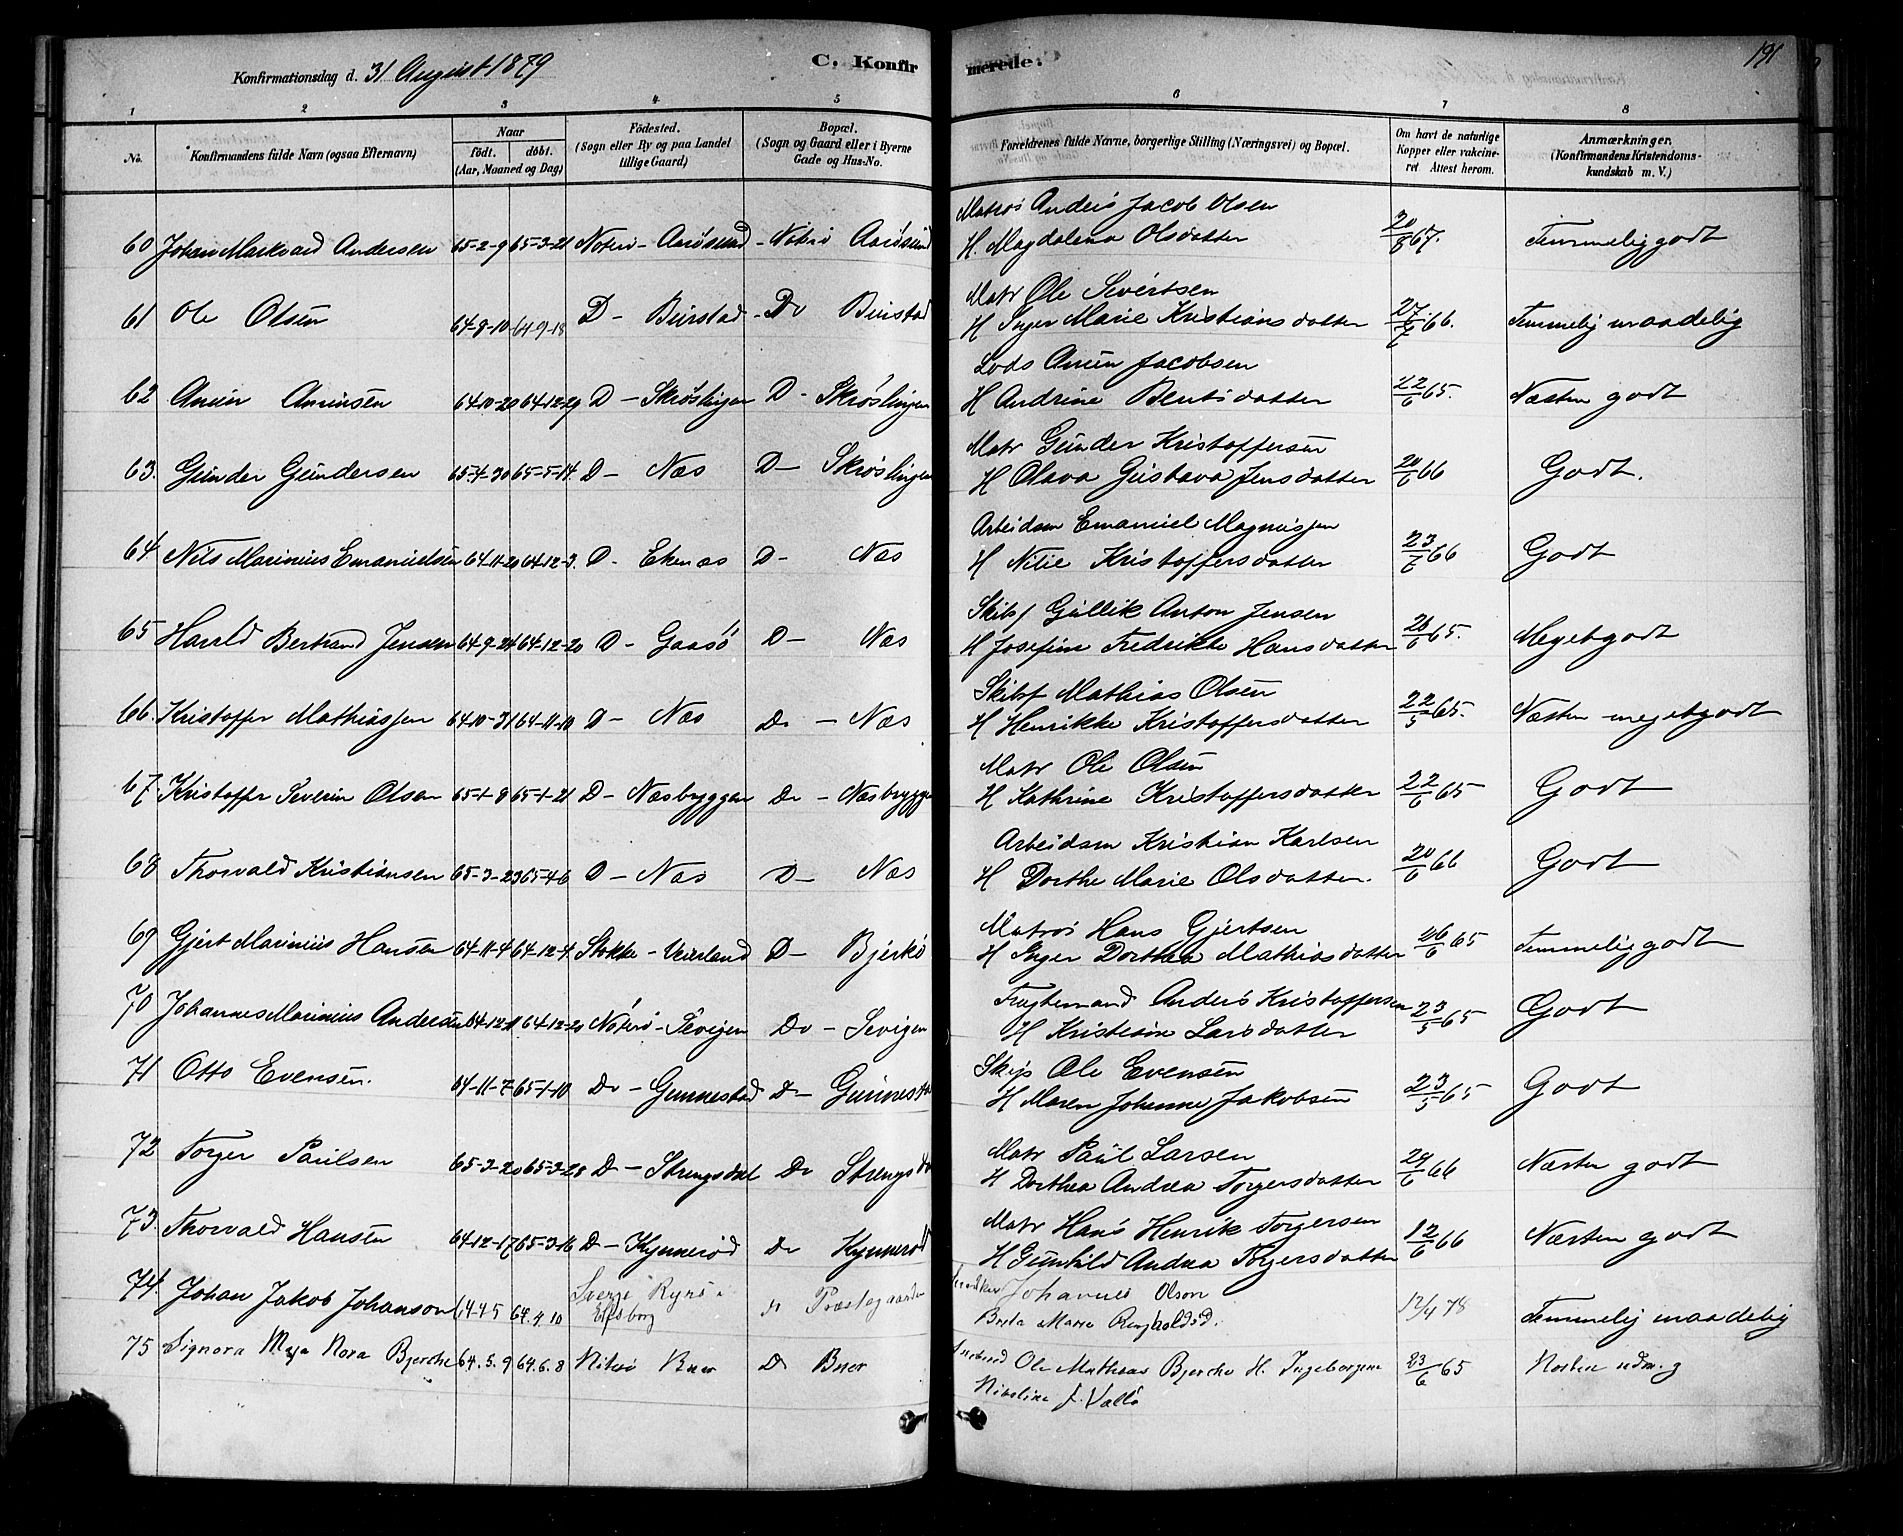 191
Konfirmationsdag d. 31 August 1879
C. Konfirmerede.
1 2 3 4 5 6 7 8
No.
Konfirmandens fulde Navn (ogsaa Efternavn)
Naar
født. døbt.
(Aar, Maaned og Dag)
Fødested.
(Sogn eller By og paa Landet
tillige Gaard)
Bopæl.
(Sogn og Gaard eller i Byerne
Gade og Hus-No.
Forældrenes fulde Navne, borgerlige Stilling (Næringsvei) og Bopæl.
Om havt de naturlige
Kopper eller vakcineret
Attest herom.
Anmærkninger.
(Konfirmandens Kristendomskundskab
m. V.)
Matros Anders Jacob Olsen
60 Johan Markvard Andersen 65-2-9 65-3-21 Noterø - Aarøsund - Noterø Aarøsund H. Magdalena Olsdatter 20/8 67. Temmelig godt
Matr Ole Sivertsen
61 Ole Olsen 64-8-10 64-9-18 D - Buirstad - Do Buirstad H Inger Marie Kristiansdatter 27/6 66. Temmelig maadelig
Lods Anun Jacobsen
62 Anun Anunsen 64-10-20 64-12-29 D - Skrøslingen D - Skrøslingen H Andrine Berntsdatter 22/6 65. Næsten godt
Matr Gunder Kristoffersen
63. Gunder Gundersen 65-4-30 65-5-14. D - Næs D - Skrøslingen H Olava Gustava Jensdatter 20/6 66 Godt.
Arbeidsm Emanuel Magnussen
64 Nils Marinius Emanuelsen 64-11-20 64-12-3. D - Ekenæs D - Næs H Nilie Kristoffersdatter 23/6 66 Godt
Skibsf Gullik Anton Jensen
65 Harald Bertrand Jensen 64-9-24 64-12-20 D - Gaasø D - Næs H Josefine Fredrikke Hansdatter 20/6 65. Meget godt
Skibsf Mathias Olsen
66. Kristoffer Mathiassen 64-10-31 64-11-10 D - Næs Do - Næs H Henrikke Kristoffersdatter 22/5 65. Næsten meget godt
Matr Ole Olsen
67 Kristoffer Severin Olsen 65-1-8 65-1-21 D - Næsbryggen Do - Næsbryggen H Kathrine Kristoffersdatter 22/6 65 Godt
Arbeidsm Kristian Karlsen
68 Thorvald Kristiansen 65-3-23 65-4-6 D - Næs D - Næs H Dorthe Marie Olsdatter. 20/6 66 Godt
Matros Hans Gjertsen
69 Gjert Marinius Hansen 64-11-4 64-12-4. Stokke - Veierland D - Bjerkø H Inger Dorthea Mathiasdatter 26/6 65 Temmelig godt
Fragtemand Anders Kristoffersen
70 Johannes Marinius Andersen 64-12-11 64-12-20 Noterø - Sevigen Do - Sevigen H Kristiane Larsdatter 23/5 65 Godt
Skip Ole Evensen
71 Otto Evensen. 64-11-7 65-1-10 Do - Gunnestad Do - Gunnest H Maren Johanne Jakobsen 23/5 65 Godt
Matr Paul Larsen
72 Torger Paulsen 65-2-20 65-3-28 Do - Strengsdal Do Strengsda H Dorthea Andrea Torgersdatter 29/6 66 Næsten godt
Matr Hans Henrik Torgersen
73. Thorvald Hansen 64-12-17 65-3-16 D - Kynnerød Do Kynnerød H Gunhild Andrea Torgersdatter 12/6 66 Næsten godt
74. Johan Jakob Johanson 64-4-5 64.4.10 Sverge Ryrs i Elfsborg do Præstegaarden Johannes Olson
Brita Maria Ringholdsd. 12/4 78 Temmelig maadelig
75 Signora Maja Nora Bjerche 64.5.9 64.6.8 Nøterø Buer D Buer Ole Mathias Bjerche H. Ingeborganna 23/6 65 Næsten udm.g
Nikoline f. Vallø